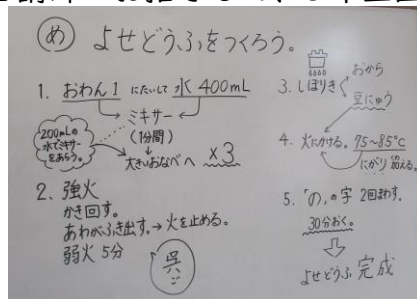 め よせどうふをつくろう。
1. おわん1 にたいして 水 400mL
ミキサー
(1分間)
200mLの
水でミキサー
をあらう。
大きいおなべへ ×3
2. 強火
かき回す。
あわがふき出す。→火を止める。
弱火 5分
呉
ご
3. しぼりきく
おから
豆にゅう
4. 火にかける。75~85℃
にがり 加える。
5. 「の」の字 2回まわす。
30分おく。
よせどうふ 完成